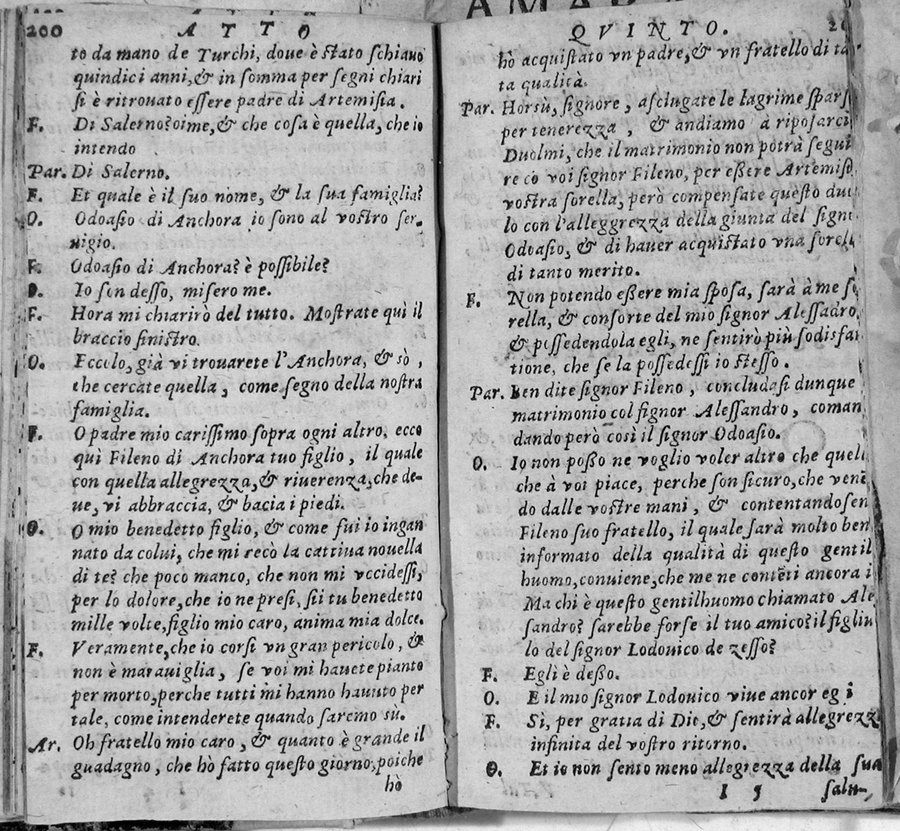 200 ATTO
to da mano de Turchi, doue è ſtato ſchiauo
quindici anni, & in ſomma per ſegni chiari
ſi è ritrouato eſſere padre di Artemiſia.
F. Di Salerno? oime, & che coſa è quella, che io
intendo
Par. Di Salerno.
F. Et quale è il ſuo nome, & la ſua famiglia?
O. Odoaſio di Anchora io ſono al voſtro ſer-
uigio.
F. Odoaſio di Anchora? è poſſibile?
O. Io ſon deſſo, miſero me.
F. Hora mi chiarirò del tutto. Moſtrate quì il
braccio ſiniſtro.
O. Eccolo, già vi trouarete l'Anchora, & sò,
che cercate quella, come ſegno della noſtra
famiglia.
F. O padre mio cariſſimo ſopra ogni altro, ecco
quì Fileno di Anchora tuo figlio, il quale
con quella allegrezza, & riuerenza, che de-
ue, vi abbraccia, & bacia i piedi.
O. O mio benedetto figlio, & come fui io ingan
nato da colui, che mi recò la cattiua nouella
di te? che poco manco, che non mi vccideſſi,
per lo dolore, che io ne preſi, ſii tu benedetto
mille volte, figlio mio caro, anima mia dolce.
F. Veramente, che io corſi vn gran pericolo, &
non è marauiglia, ſe voi mi hauete pianto
per morto, perche tutti mi hanno hauuto per
tale, come intenderete quando ſaremo sù.
Ar. Oh fratello mio caro, & quanto è grande il
guadagno, che hò fatto queſto giorno, poiche
hò
QVINTO.
hò acquiſtato vn padre, & vn fratello di ta
ta qualità.
Par. Horsù, ſignore, aſciugate le lagrime ſparſ
per tenerezza, & andiamo à ripoſarci
Duolmi, che il matrimonio non potrà ſegui
re cō voi ſignor Fileno, per eßere Artemiſ
voſtra ſorella, però compenſate queſto duo
lo con l'alleggrezza della giunta del ſigno
Odoaſio, & di hauer acquiſtato vna ſorell
di tanto merito.
F. Non potendo eßere mia ſpoſa, ſarà à me ſo
rella, & conſorte del mio ſignor Aleſſadro,
& poſſedendola egli, ne ſentirò più ſodisfat
tione, che ſe la poſſedeſſi io ſteſſo.
Par. Ben dite ſignor Fileno, concludaſi dunque
matrimonio col ſignor Aleſſandro, coman
dando però così il ſignor Odoaſio.
O. Io non poßo ne voglio voler altro che quell
che à voi piace, perche ſon ſicuro, che vené
do dalle voſtre mani, & contentandoſen
Fileno ſuo fratello, il quale ſarà molto ben
informato della qualità di queſto gentil
huomo, conuiene, che me ne contēti ancora i
Ma chi è queſto gentilhuomo chiamato Ale
ſandro? ſarebbe forſe il tuo amico? il figliu
lo del ſignor Lodouico de zeſſo?
F. Egli è deßo.
O. E il mio ſignor Lodouico viue ancor eg i
F. Si, per gratia di Dio, & ſentirà allegrezz
infinita del voſtro ritorno.
O. Et io non ſento meno allegrezza della ſua
I 5 ſalu-